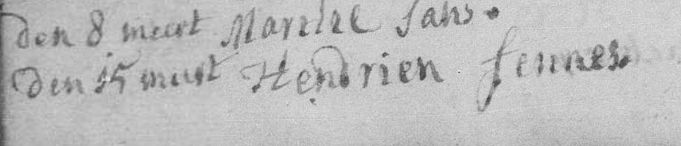 den 8 meert Martine Jans.
den 15 meert Hendrien Jennes